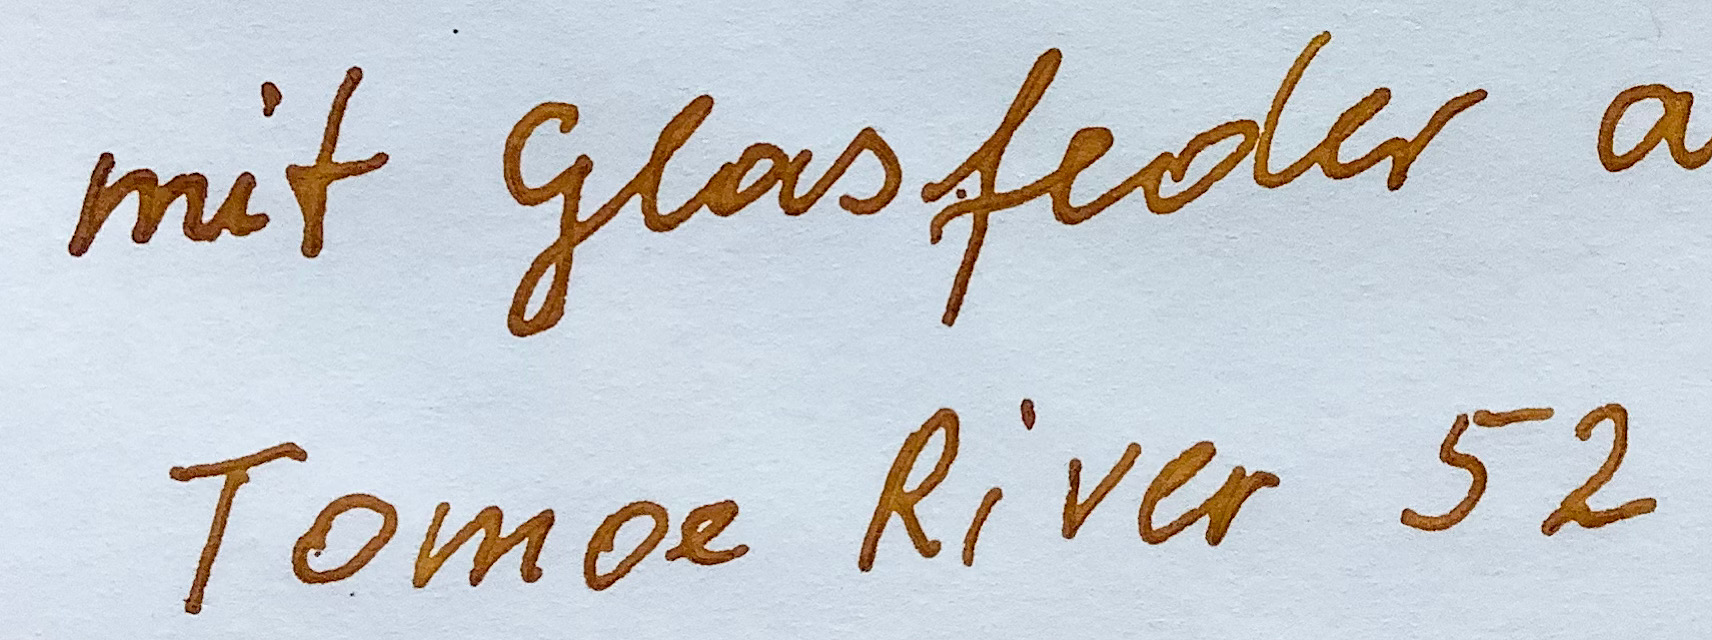 mit Glasfeder a
Tomoe River 52